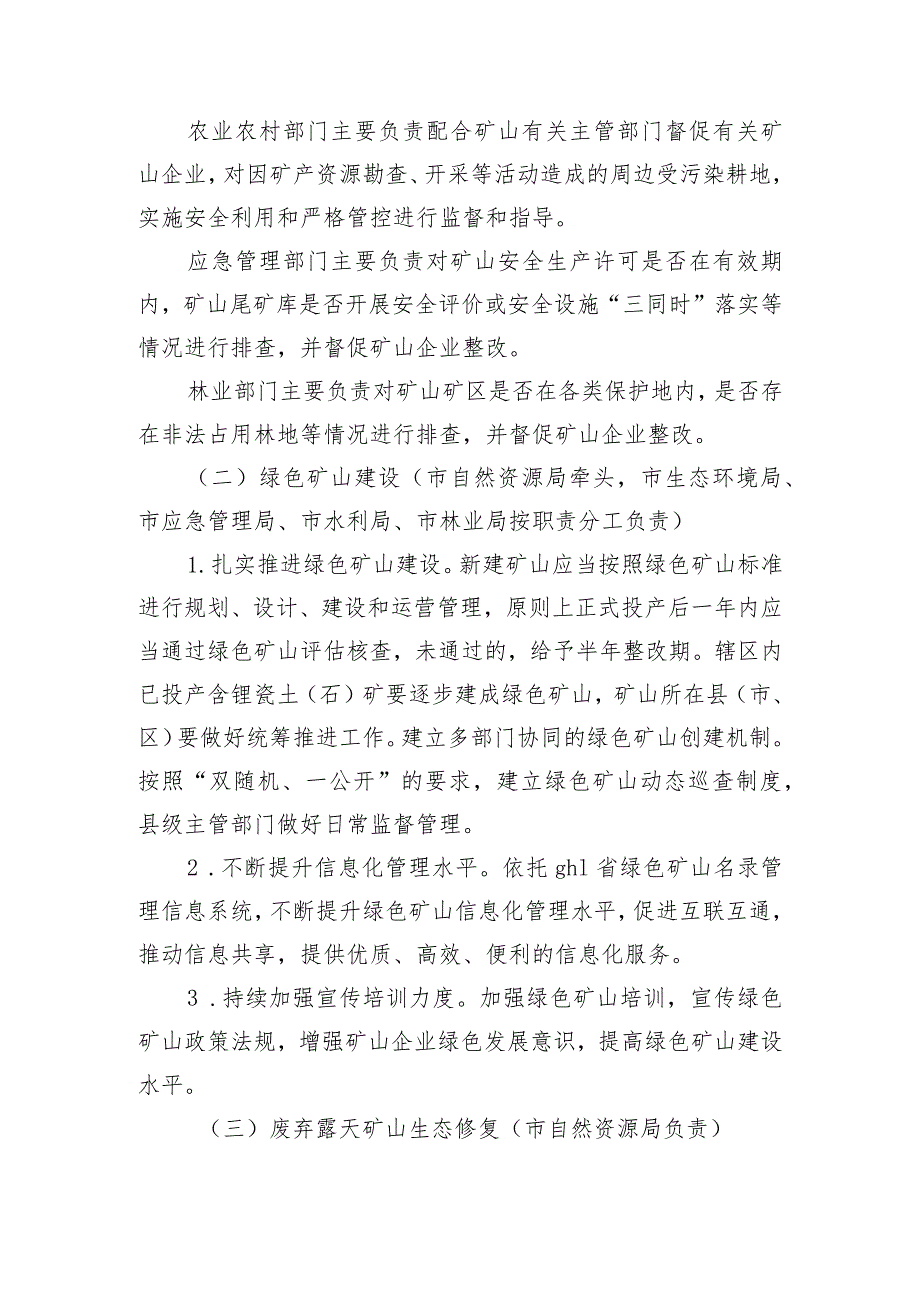 农业农村部门主要负责配合矿山有关主管部门督促有关矿
山企业,对因矿产资源勘查、开采等活动造成的周边受污染耕地,
实施安全利用和严格管控进行监督和指导。
应急管理部门主要负责对矿山安全生产许可是否在有效期
内,矿山尾矿库是否开展安全评价或安全设施“三同时”落实等
情况进行排查,并督促矿山企业整改。
林业部门主要负责对矿山矿区是否在各类保护地内,是否存
在非法占用林地等情况进行排查,并督促矿山企业整改。
（二）绿色矿山建设（市自然资源局牵头,市生态环境局、
市应急管理局、市水利局、市林业局按职责分工负责）
1.扎实推进绿色矿山建设。新建矿山应当按照绿色矿山标准
进行规划、设计、建设和运营管理,原则上正式投产后一年内应
当通过绿色矿山评估核查,未通过的,给予半年整改期。辖区内
已投产含锂瓷土（石）矿要逐步建成绿色矿山,矿山所在县（市、
区）要做好统筹推进工作。建立多部门协同的绿色矿山创建机制。
按照“双随机、一公开”的要求,建立绿色矿山动态巡查制度,
县级主管部门做好日常监督管理。
2.不断提升信息化管理水平。依托ghl省绿色矿山名录管
理信息系统,不断提升绿色矿山信息化管理水平,促进互联互通,
推动信息共享,提供优质、高效、便利的信息化服务。
3.持续加强宣传培训力度。加强绿色矿山培训,宣传绿色
矿山政策法规,增强矿山企业绿色发展意识,提高绿色矿山建设
水平。
（三）废弃露天矿山生态修复（市自然资源局负责）